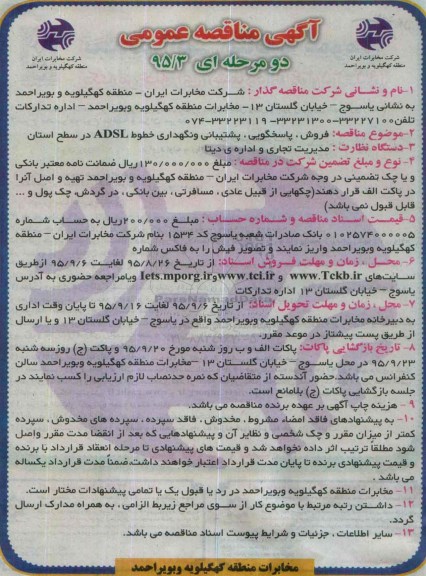 آگهی مناقصه عمومی
دو مرحله ای ۹۵/۳
شرکت مخابرات ایران
منطقه کهگیلویه و بویراحمد
شرکت مخابرات ایران
منطقه کهگیلویه و بویراحمد
۱-نام و نشانی شرکت مناقصه گذار : شرکت مخابرات ایران - منطقه کهگیلویه و بویراحمد
به نشانی یاسوج – خیابان گلستان ۱۳- مخابرات منطقه کهگیلویه وبویراحمد – اداره تدارکات
تلفن ۳۳۲۲۷۱۰۰-۳۳۲۳۱۳۰۰ - ۳۳۲۲۳۱۱۹-۰۷۴
۲-موضوع مناقصه: فروش ، پاسخگویی ، پشتیبانی ونگهداری خطوط ADSL در سطح استان
۳-دستگاه نظارت : مدیریت تجاری و اداره ی دیتا
۴- نوع و مبلغ تضمین شرکت در مناقصه : مبلغ ۱۳۰/۰۰۰/۰۰۰ریال ضمانت نامه معتبر بانکی
و یا چک تضمینی در وجه شرکت مخابرات ایران – منطقه کهگیلویه و بویراحمد تهیه و اصل آنرا
در پاکت الف قرار دهند(چکهایی از قبیل عادی ، مسافرتی ، بین بانکی ، در گردش، چک پول و ...
قابل قبول نمی باشد)
۵-قیمت اسناد مناقصه و شماره حساب : مبلغ ۲۰۰/۰۰۰ریال به حساب شماره
۰۱۰۲۵۷۴۰۰۰۰۰۵ بانک صادرات شعبه یاسوج کد ۱۵۳۴ بنام شرکت مخابرات ایران – منطقه
کهگیلویه وبویراحمد واریز نمایند و تصویر فیش را به فاکس شماره
۶- محل ، زمان و مهلت فروش اسناد: از تاریخ ۹۵/۸/۲۶ لغایت ۹۵/۹/۶ ازطریق
سایت‌های www.Tckb.ir و www.tci.ir و Iets.mporg.ir ویامراجعه حضوری به آدرس
یاسوج – خیابان گلستان ۱۳ اداره تدارکات
۷- محل ، زمان و مهلت تحویل اسناد: از تاریخ ۹۵/۹/۶ لغایت ۹۵/۹/۱۶ تا پایان وقت اداری
به دبیرخانه مخابرات منطقه کهگیلویه وبویراحمد واقع در یاسوج –خیابان گلستان ۱۳ و یا ارسال
از طریق پست پیشتاز در موعد مقرر.
۸- تاریخ بازگشایی پاکات: پاکات الف و ب روز شنبه مورخ ۹۵/۹/۲۰ و پاکت (ج) روزسه شنبه
۹۵/۹/۲۳ در محل یاسوج – خیابان گلستان ۱۳ –مخابرات منطقه کهگیلویه وبویراحمد سالن
کنفرانس می باشد.حضور آندسته از متقاضیان که نمره حدنصاب لازم ارزیابی را کسب نمایند در
جلسه بازگشایی پاکات (ج) بلامانع است.
۹ - هزینه چاپ آگهی بر عهده برنده مناقصه می باشد.
۱۰- به پیشنهادهای فاقد امضاء مشروط ، مخدوش ، فاقد سپرده ، سپرده های مخدوش ، سپرده
کمتر از میزان مقرر و چک شخصی و نظایر آن و پیشنهادهایی که بعد از انقضا مدت مقرر واصل
شود مطلقا ترتیب اثر داده نخواهد شد و قیمت های پیشنهادی تا مرحله انعقاد قرارداد با برنده
و قیمت پیشنهادی برنده تا پایان مدت قرارداد اعتبار خواهند داشت.ضمناً مدت قرارداد یکساله
می باشد .
۱۱- مخابرات منطقه کهگیلویه وبویراحمد در رد یا قبول یک یا تمامی پیشنهادات مختار است.
۱۲- داشتن رتبه مرتبط با موضوع کار از سوی مراجع زیربط الزامی ، به همراه مدارک ارسال
گردد.
۱۳- سایر اطلاعات ، جزئیات و شرایط پیوست اسناد مناقصه می باشد.
مخابرات منطقه کهگیلویه وبویراحمد